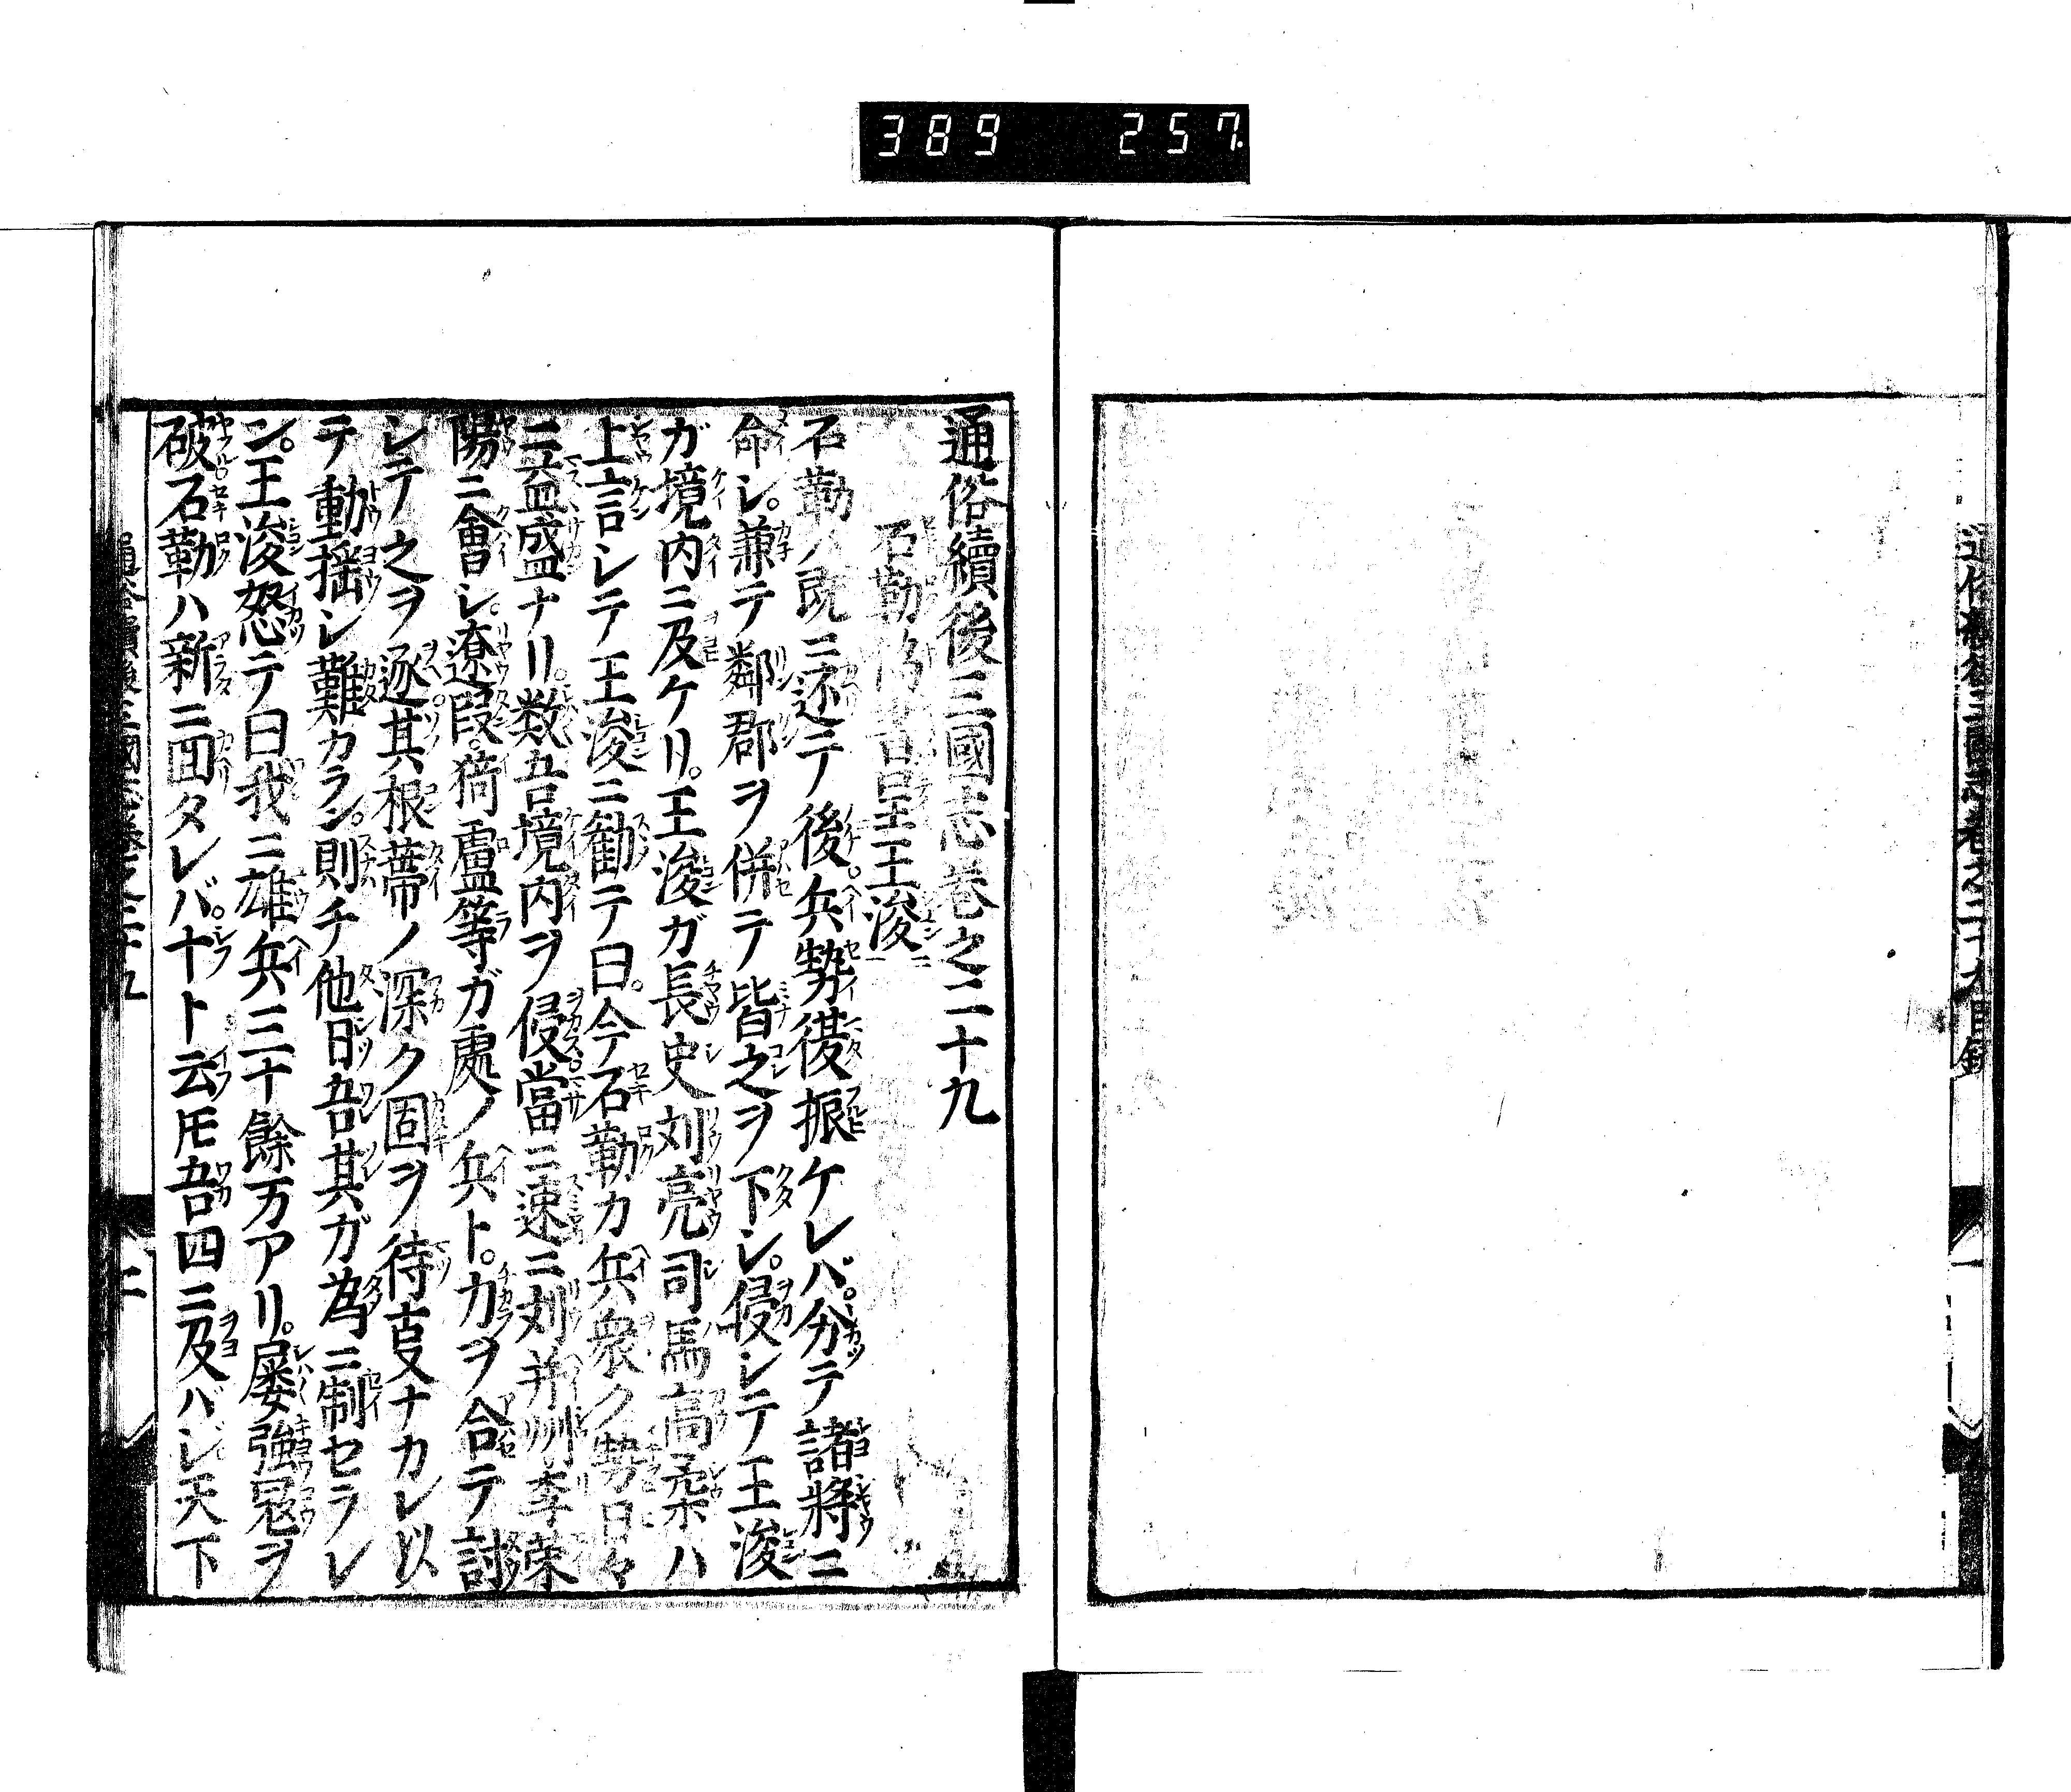 389 257
通俗續後三國志巻之二十九
石勒偽書呈王浚
石勒ハ既ニ還テ後兵勢復振ケレバ。分テ諸將ニ
命シ。兼テ鄰郡ヲ併テ皆之ヲ下シ。侵シテ王浚
ガ境内ニ及ケリ。王浚ガ長史刘亮司馬高柔ハ
上言シテ王浚ニ勧テ曰。今石勒カ兵衆ク勢日々
ニ益盛ナリ。数吾境内ヲ侵當ニ速ニ刘并州李荣
陽ニ會シ。遼段。猗盧等ガ處ノ兵ト。力ヲ合テ討
シテ之ヲ逐其根蒂ノ深ク固ヲ待叓ナカレ以
テ動揺シ難カラン。則チ他日吾其ガ為ニ制セラレ
ン。王浚怒テ曰我ニ雄兵三十餘万アリ。屡強冦ヲ
破石勒ハ新ニ回タレバ。十ト云𪜈吾四ニ及バジ天下
二